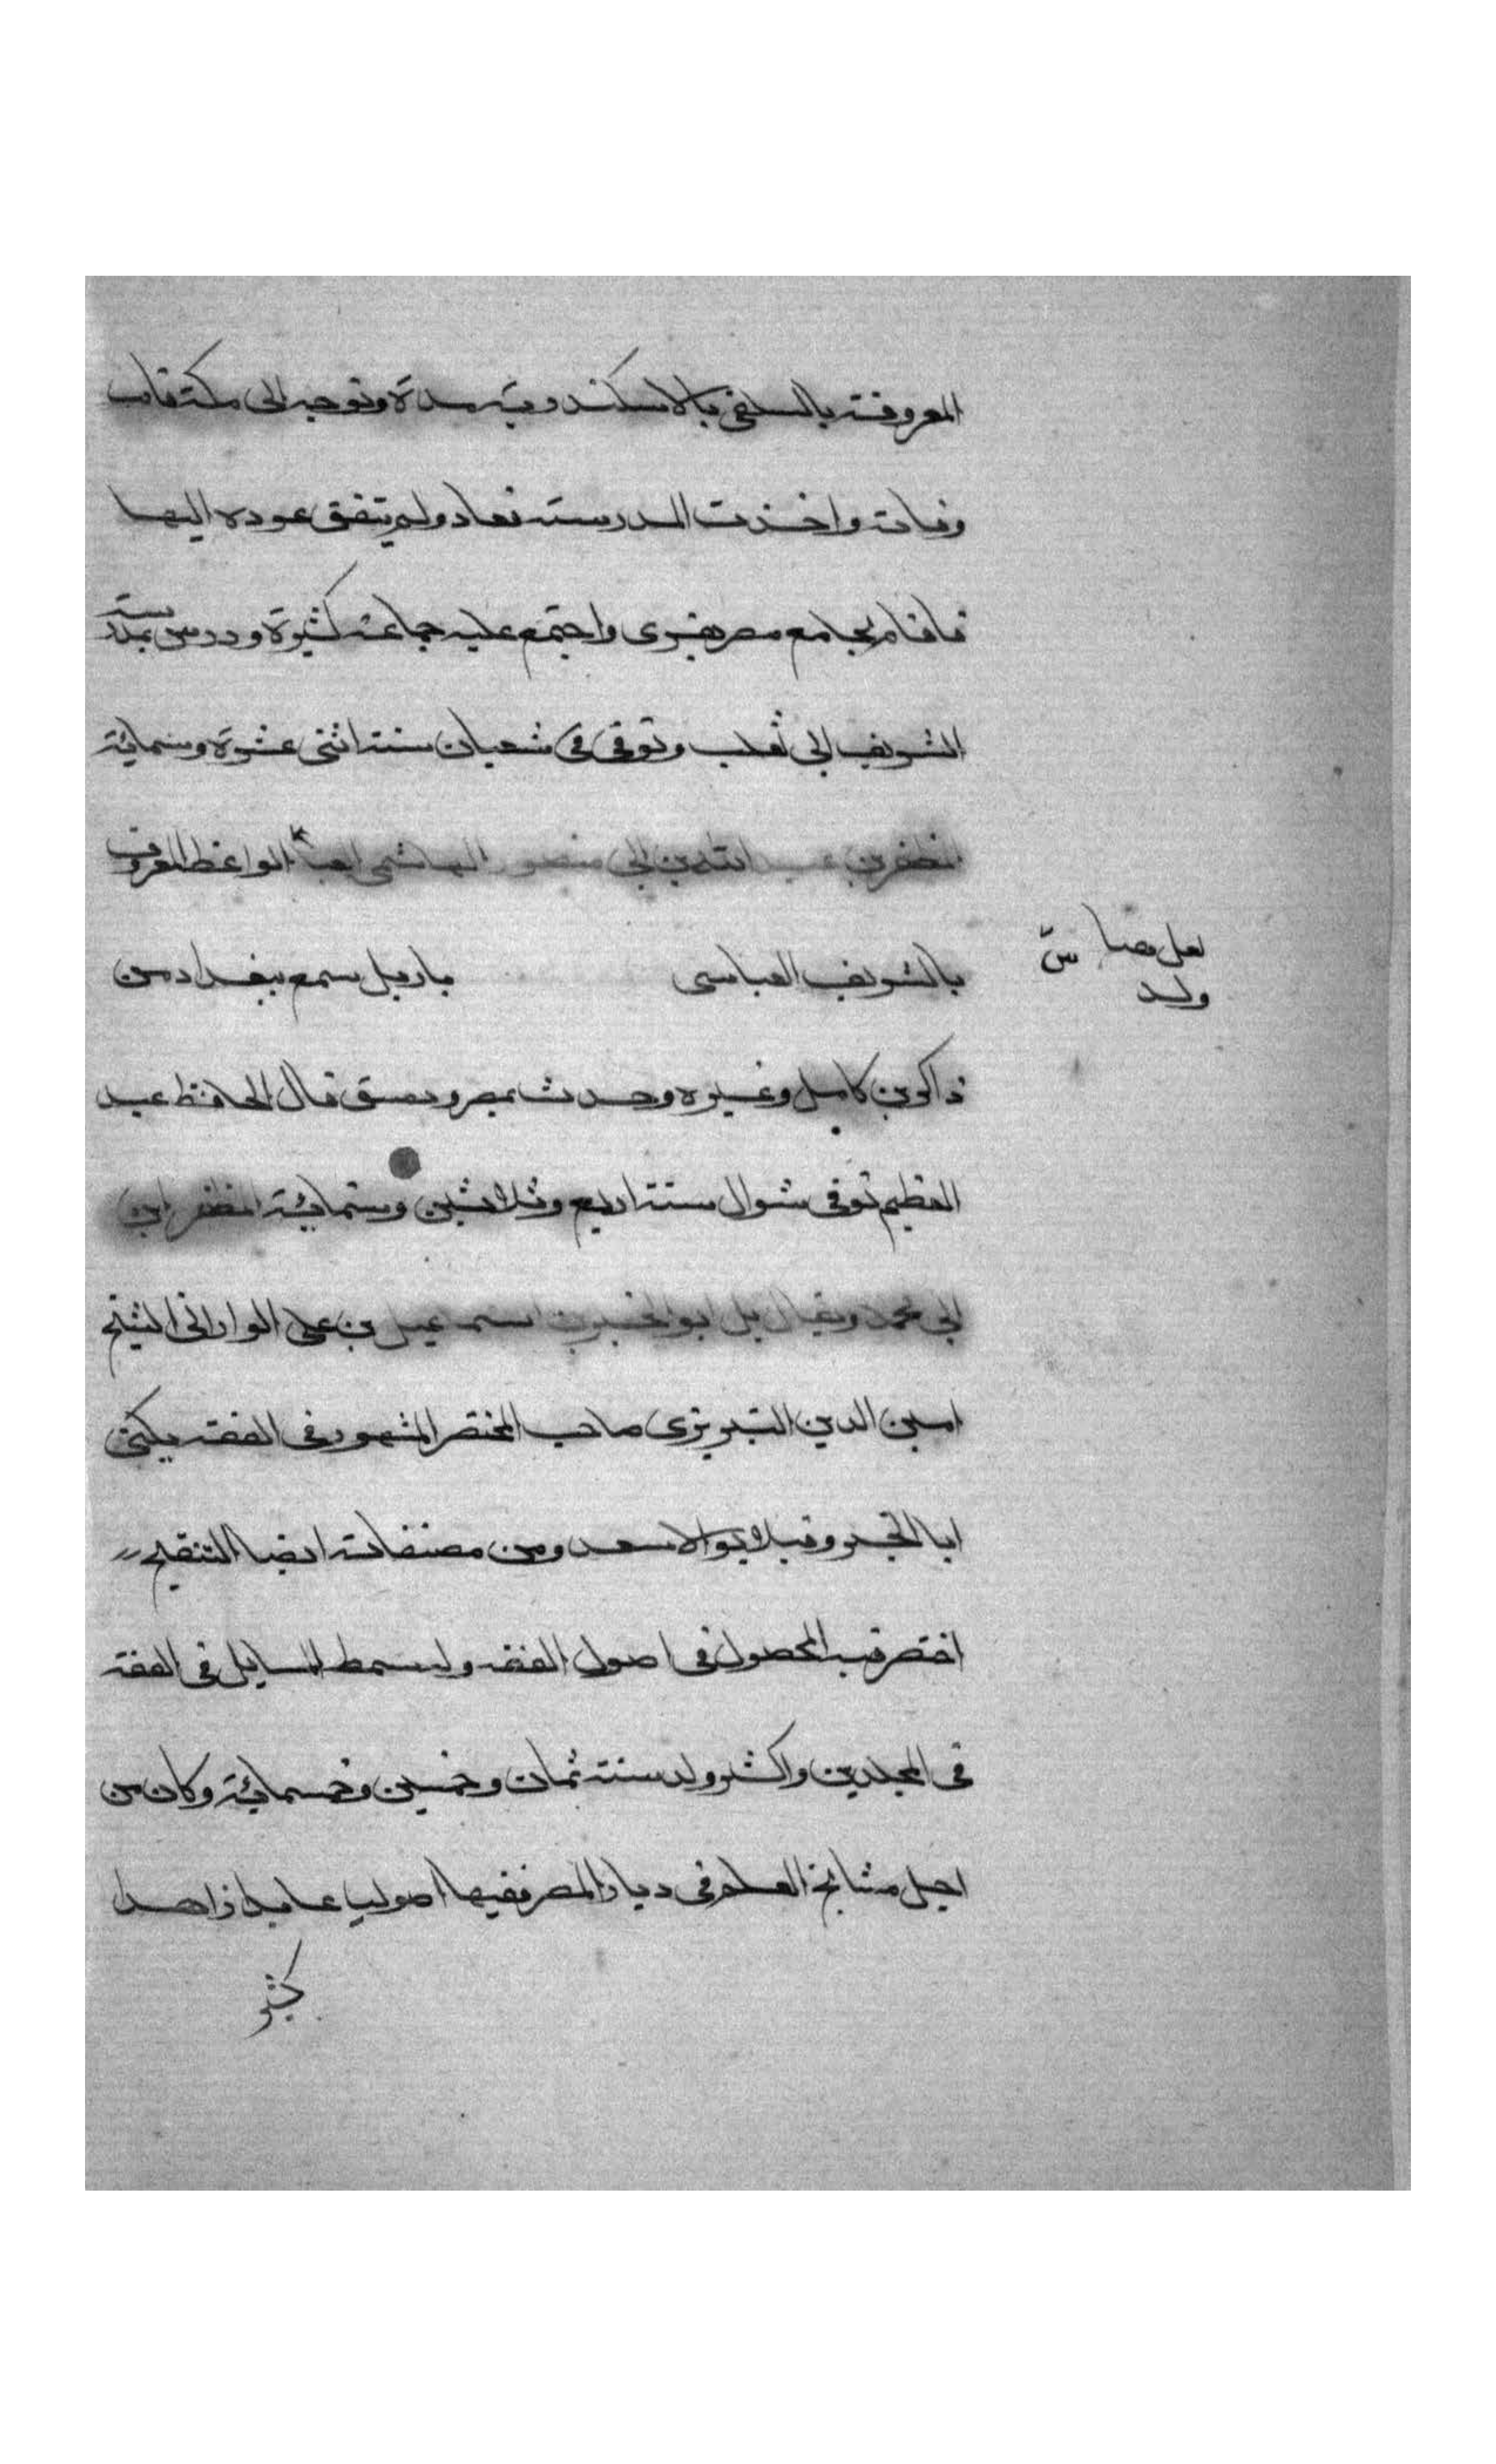 المعروفة بالسلفى بالاسكندرية مدة وتوجه الى مكة فاب
وفاته واخذت المدرسة فعاد ولم يتفق عوده اليها
فاقام بجامع مصر يقرى واجتمع عليه جماعة كثيرة ودرس بمدرسة
الشريف ابى ثعلب وتوفى فى شعبان سنة اثنتى عشرة وستمائة
المظفر بن عبد الله بن ابى منصور الهاشمى الواعظ المعروف
بالشريف العباسى باربل سمع ببغداد من
لعل هنا
ولد
ذاكر بن كامل وغيره وحدث بمصر ودمشق قال الحافظ عبد
العظيم توفى شوال سنة اربع وثلاثين وستمائة المظفر ابن
ابى محمد ويقال بل ابو الخير بن اسمعيل بن على الوارانى الشيخ
امين الدين التبريزى صاحب المختصر المشهور فى الفقه يكنى
ابا الخير وقيل ابو الاسعد ومن مصنفاته ايضا التنقيح
اختصر فيه المحصول فى اصول الفقه وله سمط المسايل فى الفقه
فى المجلدين واكثر ولد سنة ثمان وخمسين وخمسمائة وكان من
اجل مشايخ العلم فى ديار المصر فقيها اصوليا عابدا زاهدا
كثير